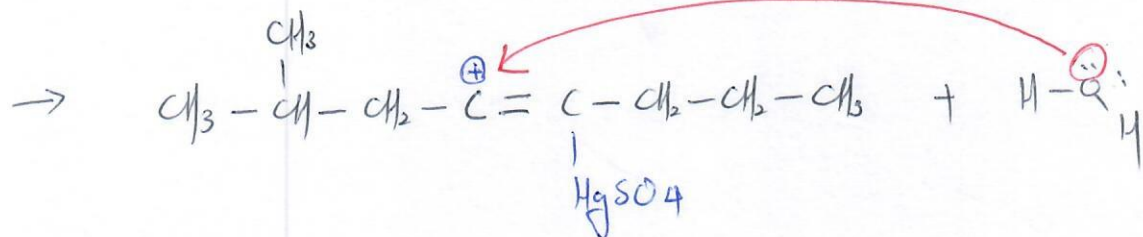 CH3
→ CH3 – CH – CH2 – C⊕ = C – CH2 – CH2 – CH3 + H – Ö: H
HgSO4